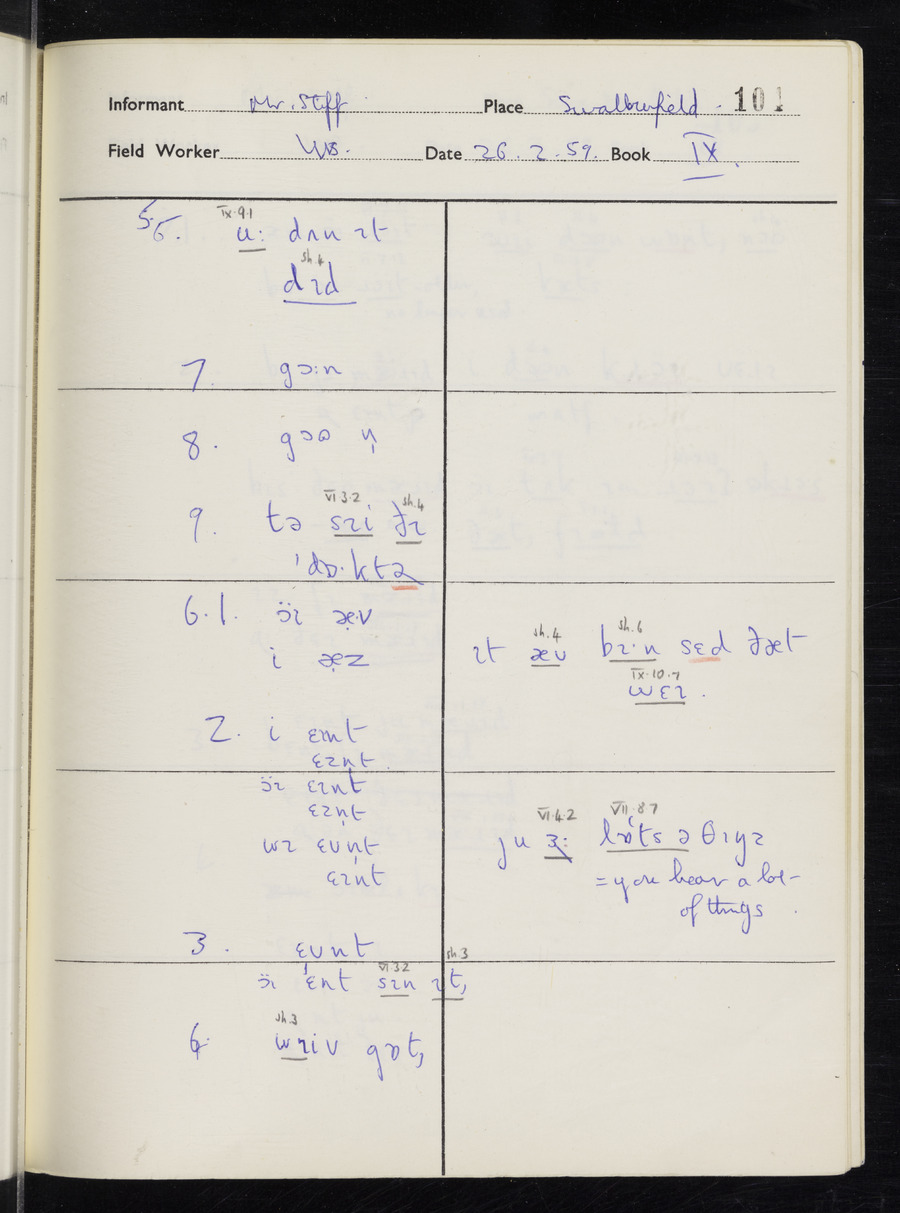 Informant Mr. Stiff Place Swallowfield - 101
Field Worker WB. Date 26.2.59. Book IX.
IX.9.1
5.6. u: dʌn ɪt
sh.4
dɪd
7. gɔ:n
8. gɔʊ n̩
VI 3.2 sh.4
9. tə sɪi ðɪ
ˈdɒ·ktə
6.1. æ·v
i æz
sh.4 sh.6
ɪt æv bɪ·n sɛd ðæt
IX.10.7
wɛɪ.
2. i ɛɪnt
ɛɪnt.
ɛɪnt
ɛɪnt
wɪ ɛʋnt
ɛɪnt
VI.4.2 VII.8.7
ju ɜ: lɒts ə θɪŋz
= you hear a lot
of things.
3. ɛʋnt
VI 3.2 sh.3
ɛnt sɪn ɪt,
sh.3
wɪiv gɒt,